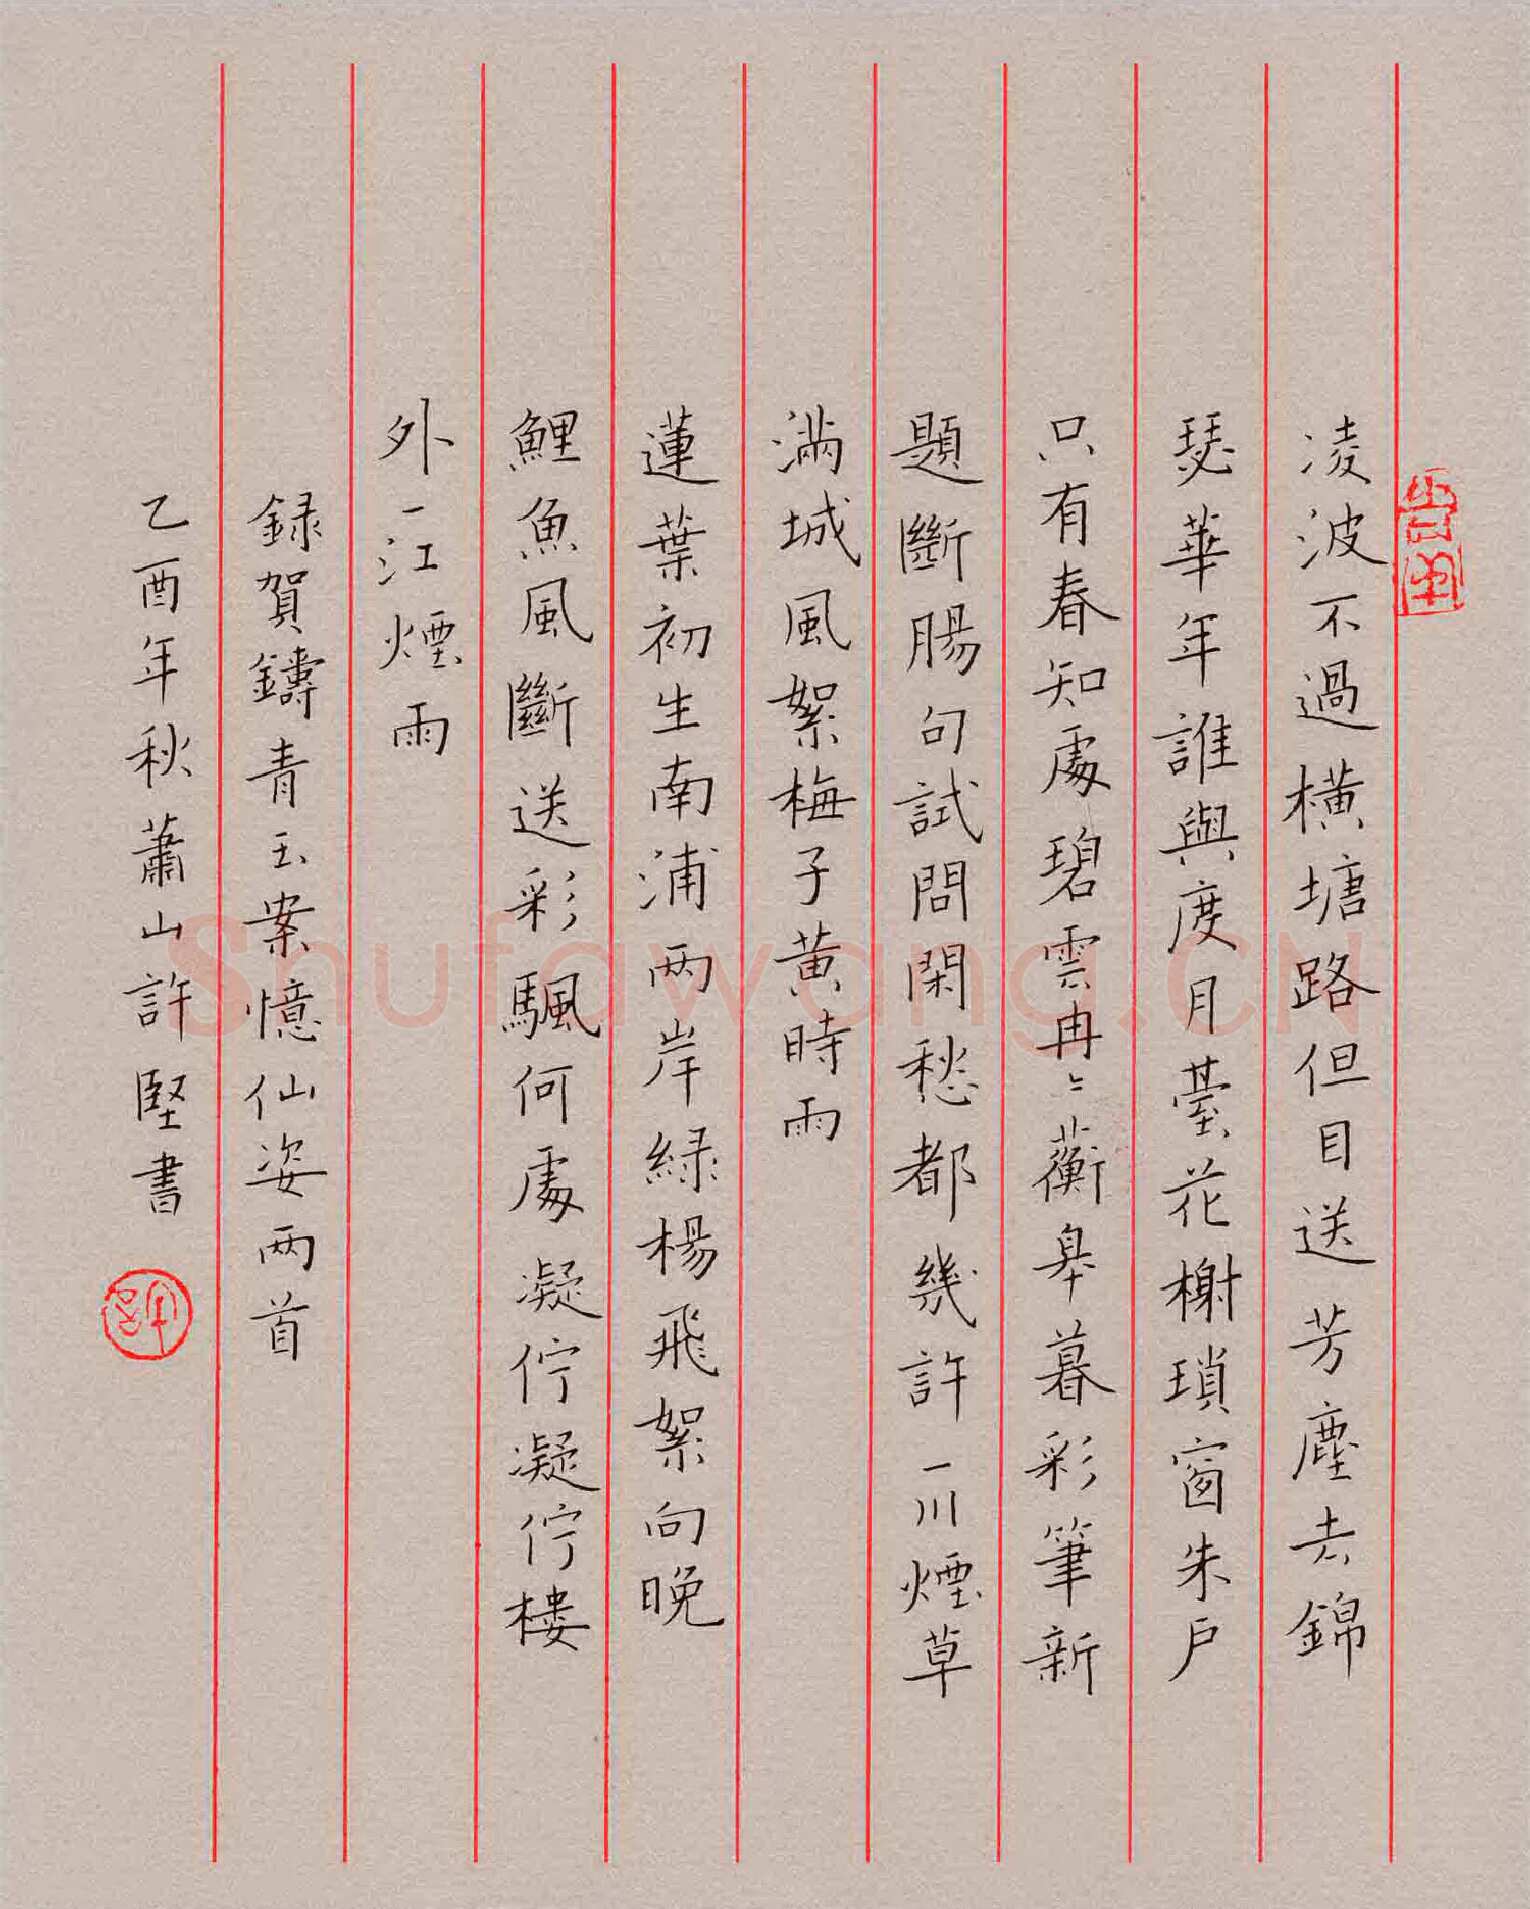 凌波不過橫塘路但目送芳塵去錦
瑟華年誰與度月臺花榭瑣窗朱戶
只有春知處碧雲冉〻蘅皋暮彩筆新
題斷腸句試問閑愁都幾許一川煙草
滿城風絮梅子黃時雨
蓮葉初生南浦兩岸綠楊飛絮向晚
鯉魚風斷送彩颿何處凝佇凝佇樓
外一江煙雨
録賀鑄青玉案憶仙姿兩首
乙酉年秋蕭山許堅書
Shufawang.CN